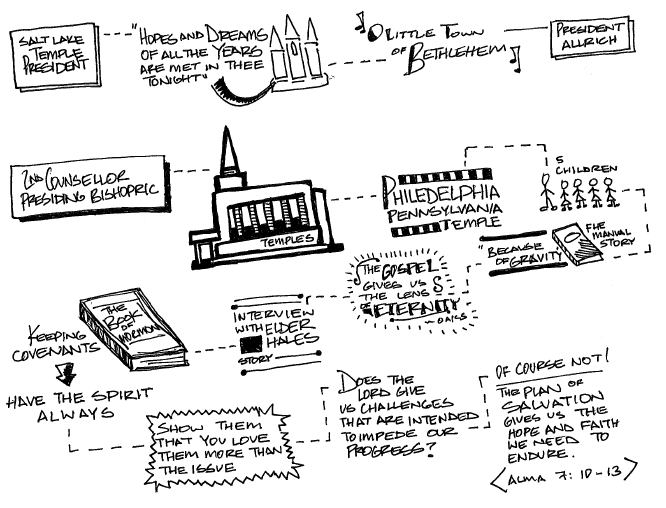 SALT LAKE
TEMPLE
PRESIDENT
"HOPES AND DREAMS
OF ALL THE YEARS
ARE MET IN THEE
TONIGHT"
O LITTLE TOWN
OF BETHLEHEIM
PRESIDENT
ALLRICH
2ND COUNSELLOR
PRESIDING BISHOPRIC
TEMPLES
PHILEDELPHIA
PENNSYLVANIA
TEMPLE
5
CHILDREN
FHE
MANUAL
STORY
"BECAUSE
OF GRAVITY"
THE GOSPEL
GIVES US
THE LENS
OF ETERNITY
~ OAKS
INTERVIEW
WITH ELDER
HALES
STORY
THE
BOOK
OF
MORMON
KEEPING
COVENANTS
HAVE THE SPIRIT
ALWAYS
SHOW THEM
THAT YOU LOVE
THEM MORE THAN
THE ISSUE
DOES THE
LORD GIVE
US CHALLENGES
THAT ARE INTENDED
TO IMPEDE OUR
PROGRESS?
OF COURSE NOT!
THE PLAN OF
SALVATION
GIVES US THE
HOPE AND FAITH
WE NEED TO
ENDURE.
ALMA 7:10-13